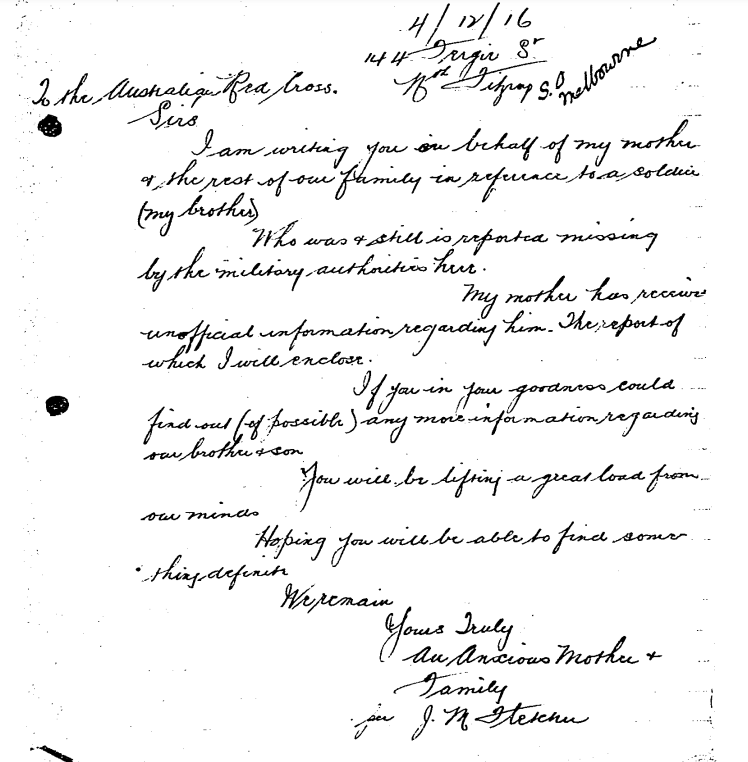 4/12/16
144 St
Nth Fitzroy S.O Melbourne
To the Australian Red Cross.
Sirs
I am writing you on behalf of my mother
& the rest of our family in reference to a soldier
(my brother)
Who was & still is reported missing
by the military authorities here.
My mother has receive
unofficial information regarding him. The report of
which I will enclose.
If you in your goodness could
find out (if possible) any more information regarding
our brother & son
You will be lifting a great load from
our minds
Hoping you will be able to find some
thing definite
We remain
Yours Truly
An Anxious Mother &
Family
per J. M Fletcher